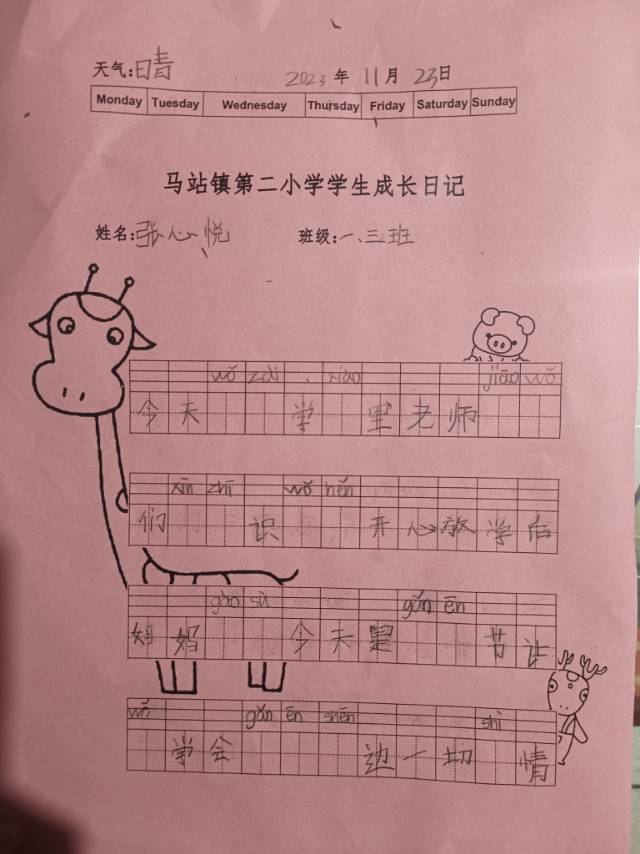 天气:晴 2023 年 11 月 23 日
Monday Tuesday Wednesday Thursday Friday Saturday Sunday
马站镇第二小学学生成长日记
姓名:张心悦 班级:一、三班
wǒ zài xiào jiāo wǒ
今天 学 里老师
xīn zhī wǒ hěn
们 识 开心放学后
gào sù gǎn ēn
妈妈 今天是 节让
wǒ gǎn ēn shēn shì
学会 边一切 情